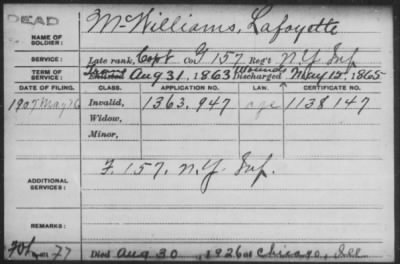 DEAD
NAME OF SOLDIER: McWilliams, Lafayette
SERVICE: Late rank, Capt Co. F 157 Reg't N.Y. Inf
TERM OF SERVICE: Enlisted Aug 31, 1863 Wounds Discharged May 12, 1865
DATE OF FILING. CLASS. APPLICATION NO. LAW. CERTIFICATE NO.
1907 May 16 Invalid, 1363.947 age 1138 147
Widow,
Minor,
ADDITIONAL SERVICES: F. 157. N.Y. Inf.
REMARKS:
77 Died Aug 30, 1926 at Chicago, Ill